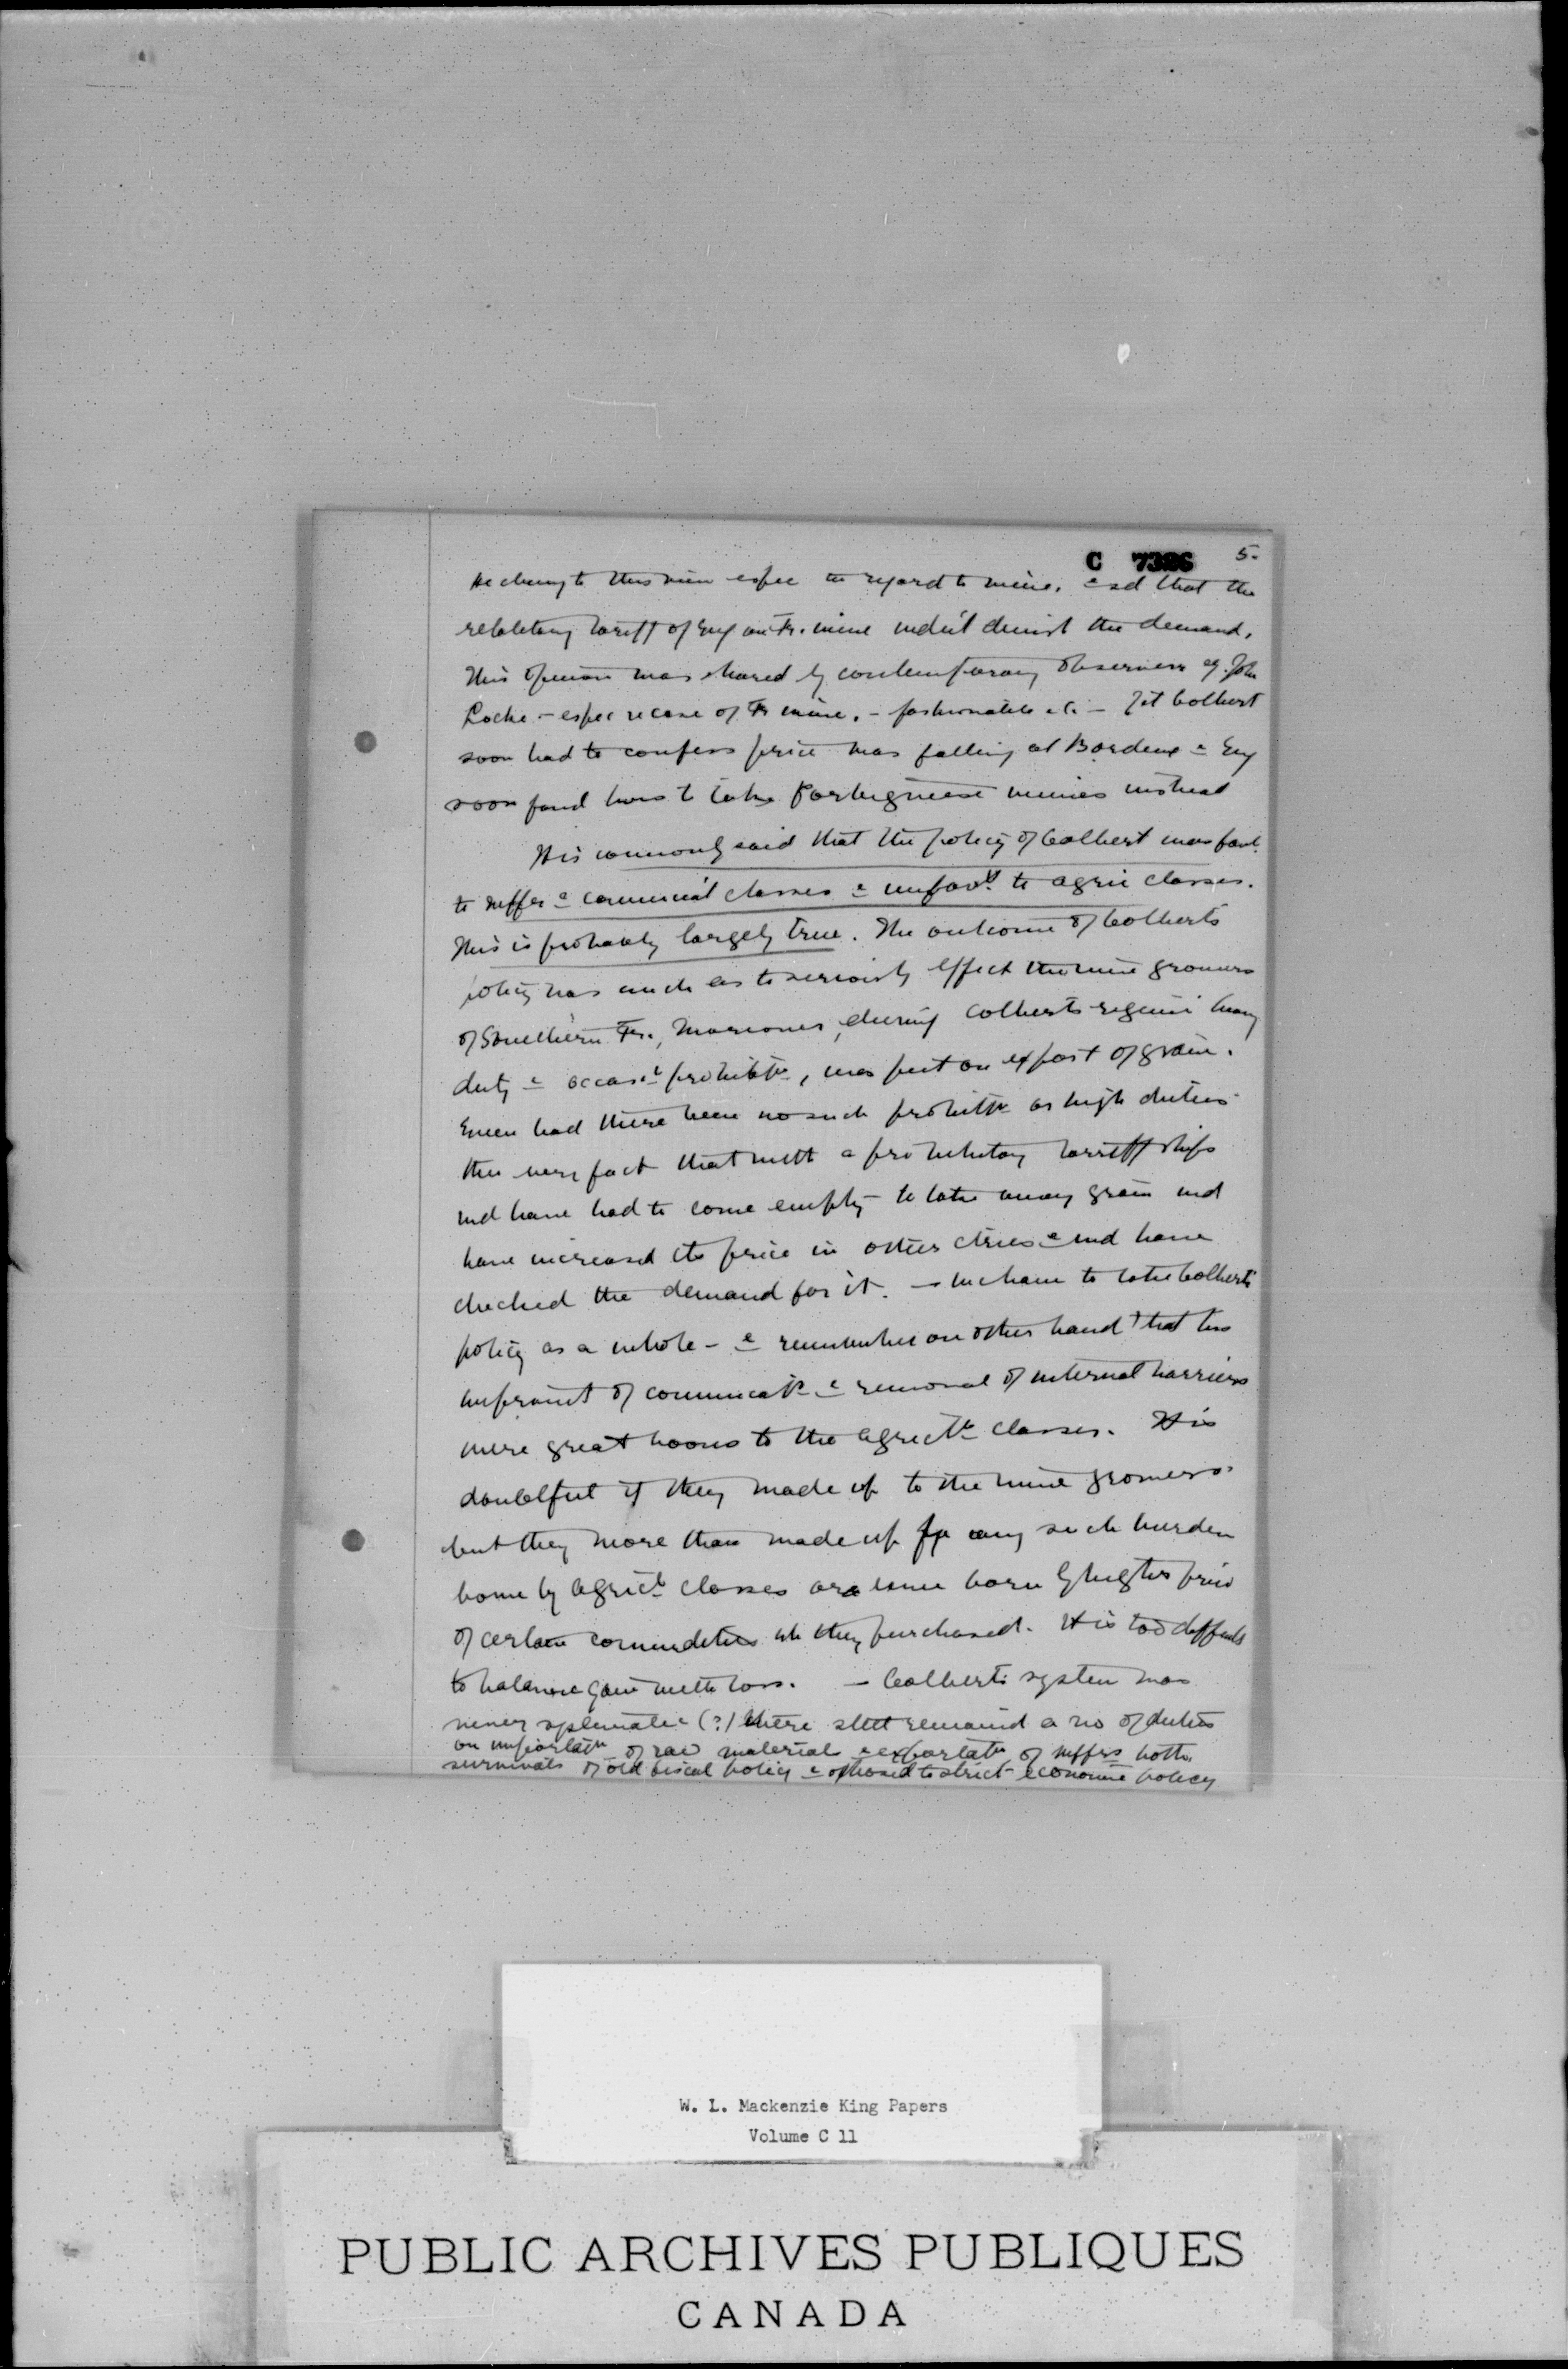 C 7396 5.
He clung to this view espec in regard to wine. & sd that the
retaliatory tariff of Eng on Fr. wine wdn't dimin't the demand.
This opinion was shared by contemporary observers eg. John
Locke - espec re case of Fr wine. - fashionable etc - Yet Colbert
soon had to confess price was falling at Bordeux & Eng
soon fond how to take Portugueese wines instead
It is commonly said that the policy of Colbert was favbl.
to mffrs & commercial classes & unfavbl. to agric classes.
This is probably largely true. The outcome of Colberts
policy was such as to seriously effect the wine growers
of Southern Fr., Moreover, during Colberts regime heavy
duty & occasl prohibitn, was put on export of grain.
Even had there been no such prohibitn or high duties
the very fact that with a prohibitory tarriff ships
wd have had to come empty to take away grain wd
have increased its price in other ctries & wd have
checked the demand for it. - We have to take Colbert's
policy as a whole - & remember on other hand that his
improvmt of communicatn & removal of internal barriers
were great boons to the agricltl classes. It is
doubtful if they made up to the wine growers
but they more than made up for any such burden
borne by agricl classes as were born by higher price
of certain commodities wh they purchased. It is too difficult
to balance gain with loss. - Colberts system was
never systematic (?) there still remained a no of duties
on importatn of raw materials & exportatn of mffrs both
survivals of old fiscal policy & opposed to strict economic policy
W. L. Mackenzie King Papers
Volume C 11
PUBLIC ARCHIVES PUBLIQUES
CANADA